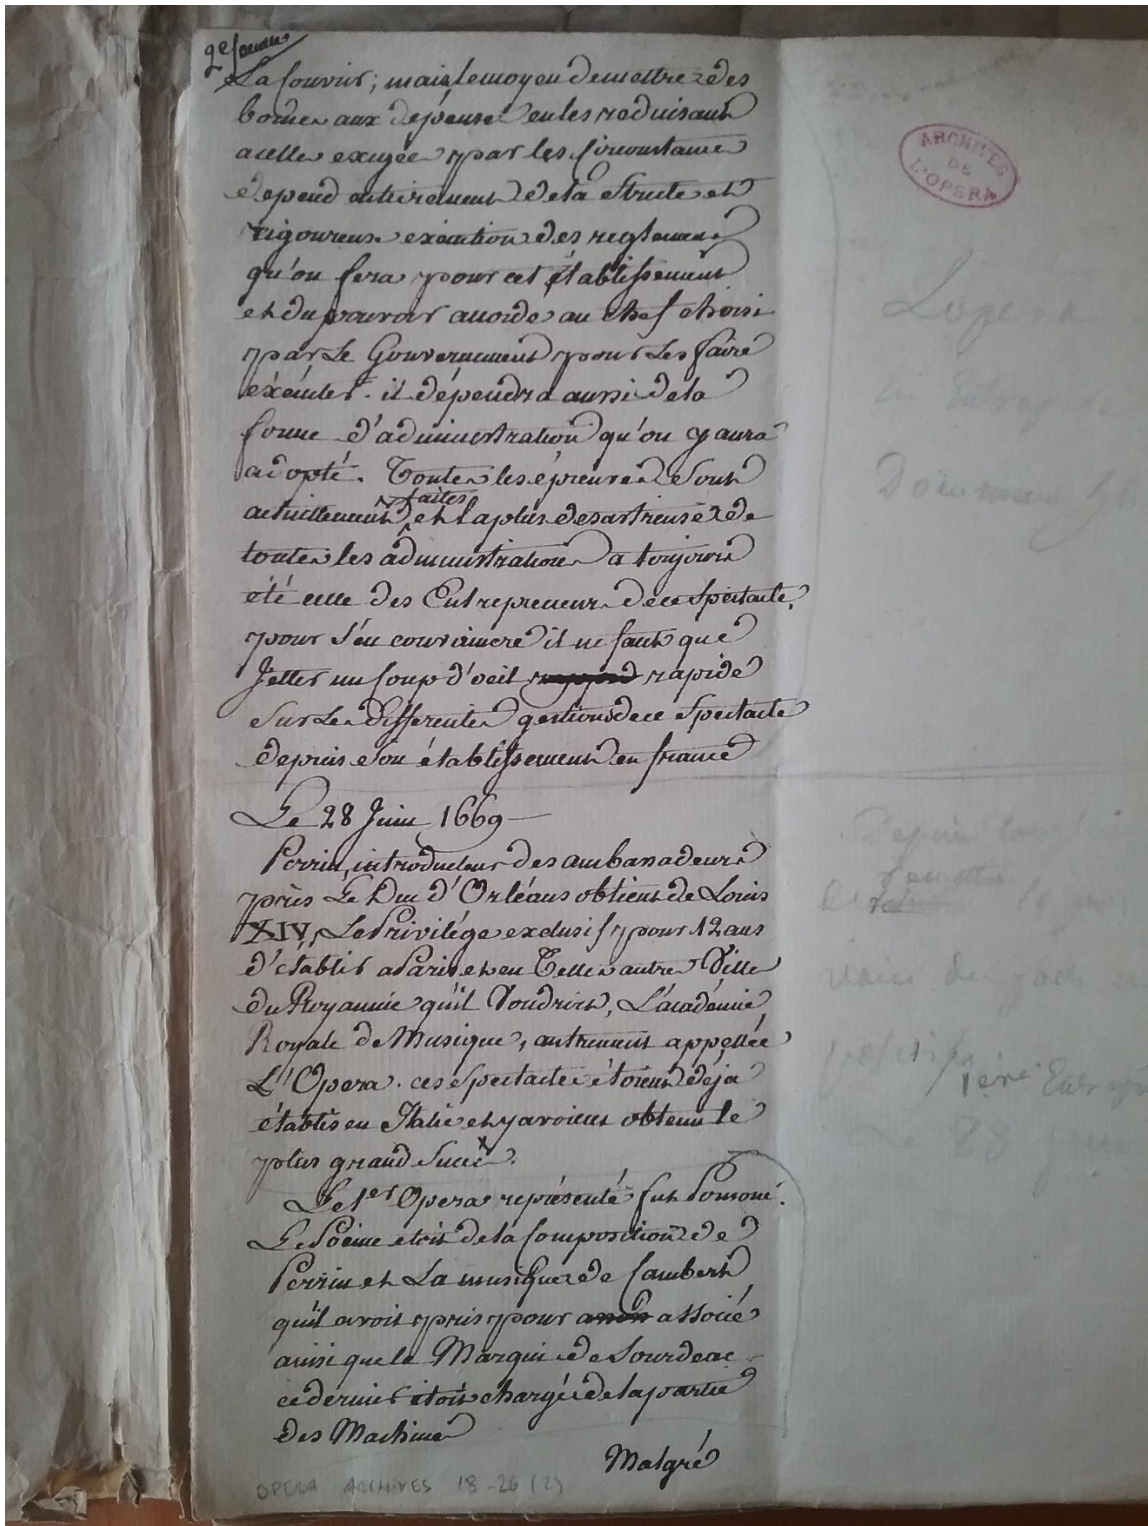 2e
La Couvrir; mais le moyen de mettre des
bornes aux dépenses en les reduisant
a celles exigées par les Circonstances
depend entierement de la Stricte et
rigoureuse exécution des reglemens
qu'on fera pour cet établissement
et du pouvoir accordé au chef choisi
par Le Gouvernement pour Les faire
exécuter. il dépendra aussi de la
forme d'administration qu'on y aura
adopté. Toutes les épreuves Sont
faites
actuellement et la plus desastreuse de
toutes les administrations a toujours
été celle des Entrepreneurs de ce Spectacle.
pour s'en convaincre il ne faut que
Jetter un Coup d'oeil rapide
Sur Les differentes gestions de ce Spectacle
depuis son établissement en france
Le 28 Juin 1669
Perrin, introducteur des ambassadeurs
près Le Duc d'Orléans obtient de Louis
XIV, Le Privilége exclusif pour 12 ans
d'établir a Paris et en Telles autres Villes
du Royaume qu'il Voudroit, L'académie
Royale de Musique, autrement appellée
L'Opera. ces Spectacles étoient déja
établis en Italie et y avoient obtenu le
plus grand Succès.
Le 1er Opera représenté fut Pomone.
Le Poëme etoit de la Composition de
Perrin et La musique de Cambert
qu'il avoit pris pour associé
ainsi que le Marquis de Sourdeac
ce dernier étoit chargé de la partie
des Machines
Malgré
OPERA ARCHIVES 18-26 (2)
ARCHIVES
DE
L'OPERA
1ère